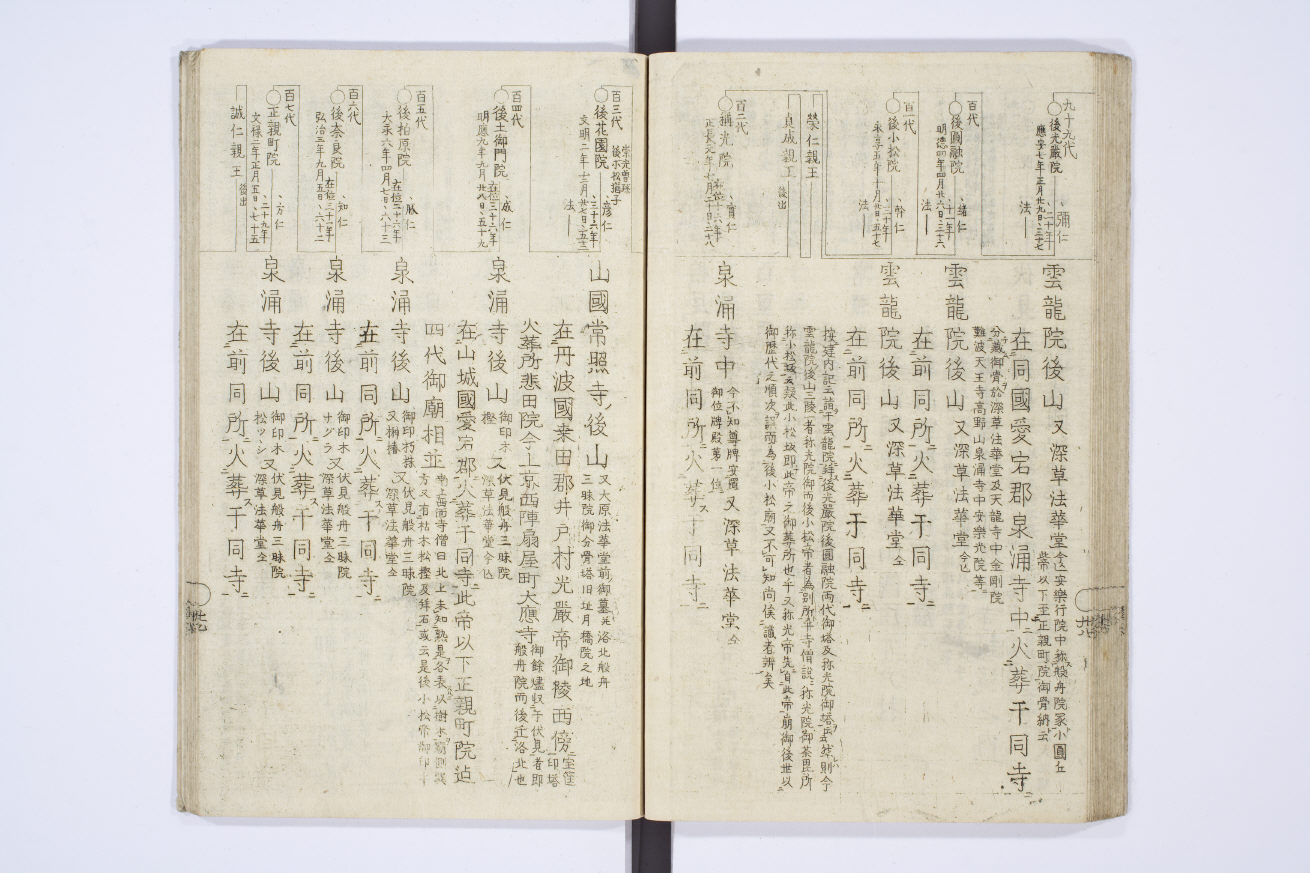 九十九代
後光嚴院
應安七年正月廿九日、三十七
、彌仁
二十年
法
雲龍院後山
又深草法華堂
今迄安樂行院中称般舟院冢小圓丘
柴帝以下至正親町院御骨納云
在同國愛宕郡泉涌寺中火葬于同寺
分藏御骨於深草法華堂及天龍寺中金剛院
難波天王寺高野山泉涌寺中安樂光院等
百代
後圓融院
明德四年四月廿六日、三十六
、緒仁
十二年
法
雲龍院後山
又深草法華堂今迄
在前同所火葬于同寺
百一代
後小松院
永享五年十月廿日、五十七
、幹仁
法
雲龍院後山
又深草法華堂仝
在前同所火葬于同寺
榮仁親王
貞成親王
後出
按建内記云詣于雲龍院拜後光嚴院後圓融院両代御塔及称光院御塔云然則今
雲龍院後山三陵一者称光院御而後小松帝者為別所乎寺僧説称光院御荼毘所
称小松坂云疑此小松坂即此帝之御葬所也乎又称光帝先自此帝崩御後世以
御歴代之順次誤而為後小松廟又不可知尚俟識者辨矣
百二代
稱光院
正長元年七月二十日、二十八
、實仁
在位十六年
泉涌寺中
今不知尊牌安置
御位牌殿第一位
又深草法華堂仝
在前同所火葬于同寺
百三代
後花園院
崇光曽孫
後小松猶子
文明二年十二月廿七日、五十二
彦仁
三十六年
法
山國常照寺後山
又大原法華堂前御墓 洛北般舟
三昧院御分骨塔旧址月橋院之地
在丹波國桒田郡井戸村光嚴帝御陵西傍
宝筐
印塔
火葬所悲田院今上京西陣扇屋町大應寺
御餘燼収于伏見者即
般舟院而後迁洛北也
百四代
後土御門院
明應九年九月廿八日、五十九
、成仁
在位三十六年
泉涌寺後山
御印木
樫
又
伏見般舟三昧院
深草法華堂今迄
在山城國愛宕郡火葬于同寺此帝以下正親町院迠
四代御廟相並
南上西面寺僧曰北上未知熟是各表以樹木
方又有枯木松樫及拜石或云是後小松帝御
百五代
後柏原院
大永六年四月七日、六十三
、勝仁
在位二十六年
泉涌寺後山
御印朽株
又榊椿
又
伏見般舟三昧院
深草法華堂仝
在前同所火葬于同寺
百六代
後奈良院
弘治三年九月五日、六十二
、知仁
在位三十一年
泉涌寺後山
御印木
サクラ
又
伏見般舟三昧院
深草法華堂仝
在前同所火葬于同寺
百七代
正親町院
文禄二年正月五日、七十五
、方仁
二十九年
泉涌寺後山
御印木
松ツヽシ
又
伏見般舟三昧院
深草法華堂仝
在前同所火葬于同寺
誠仁親王
後出